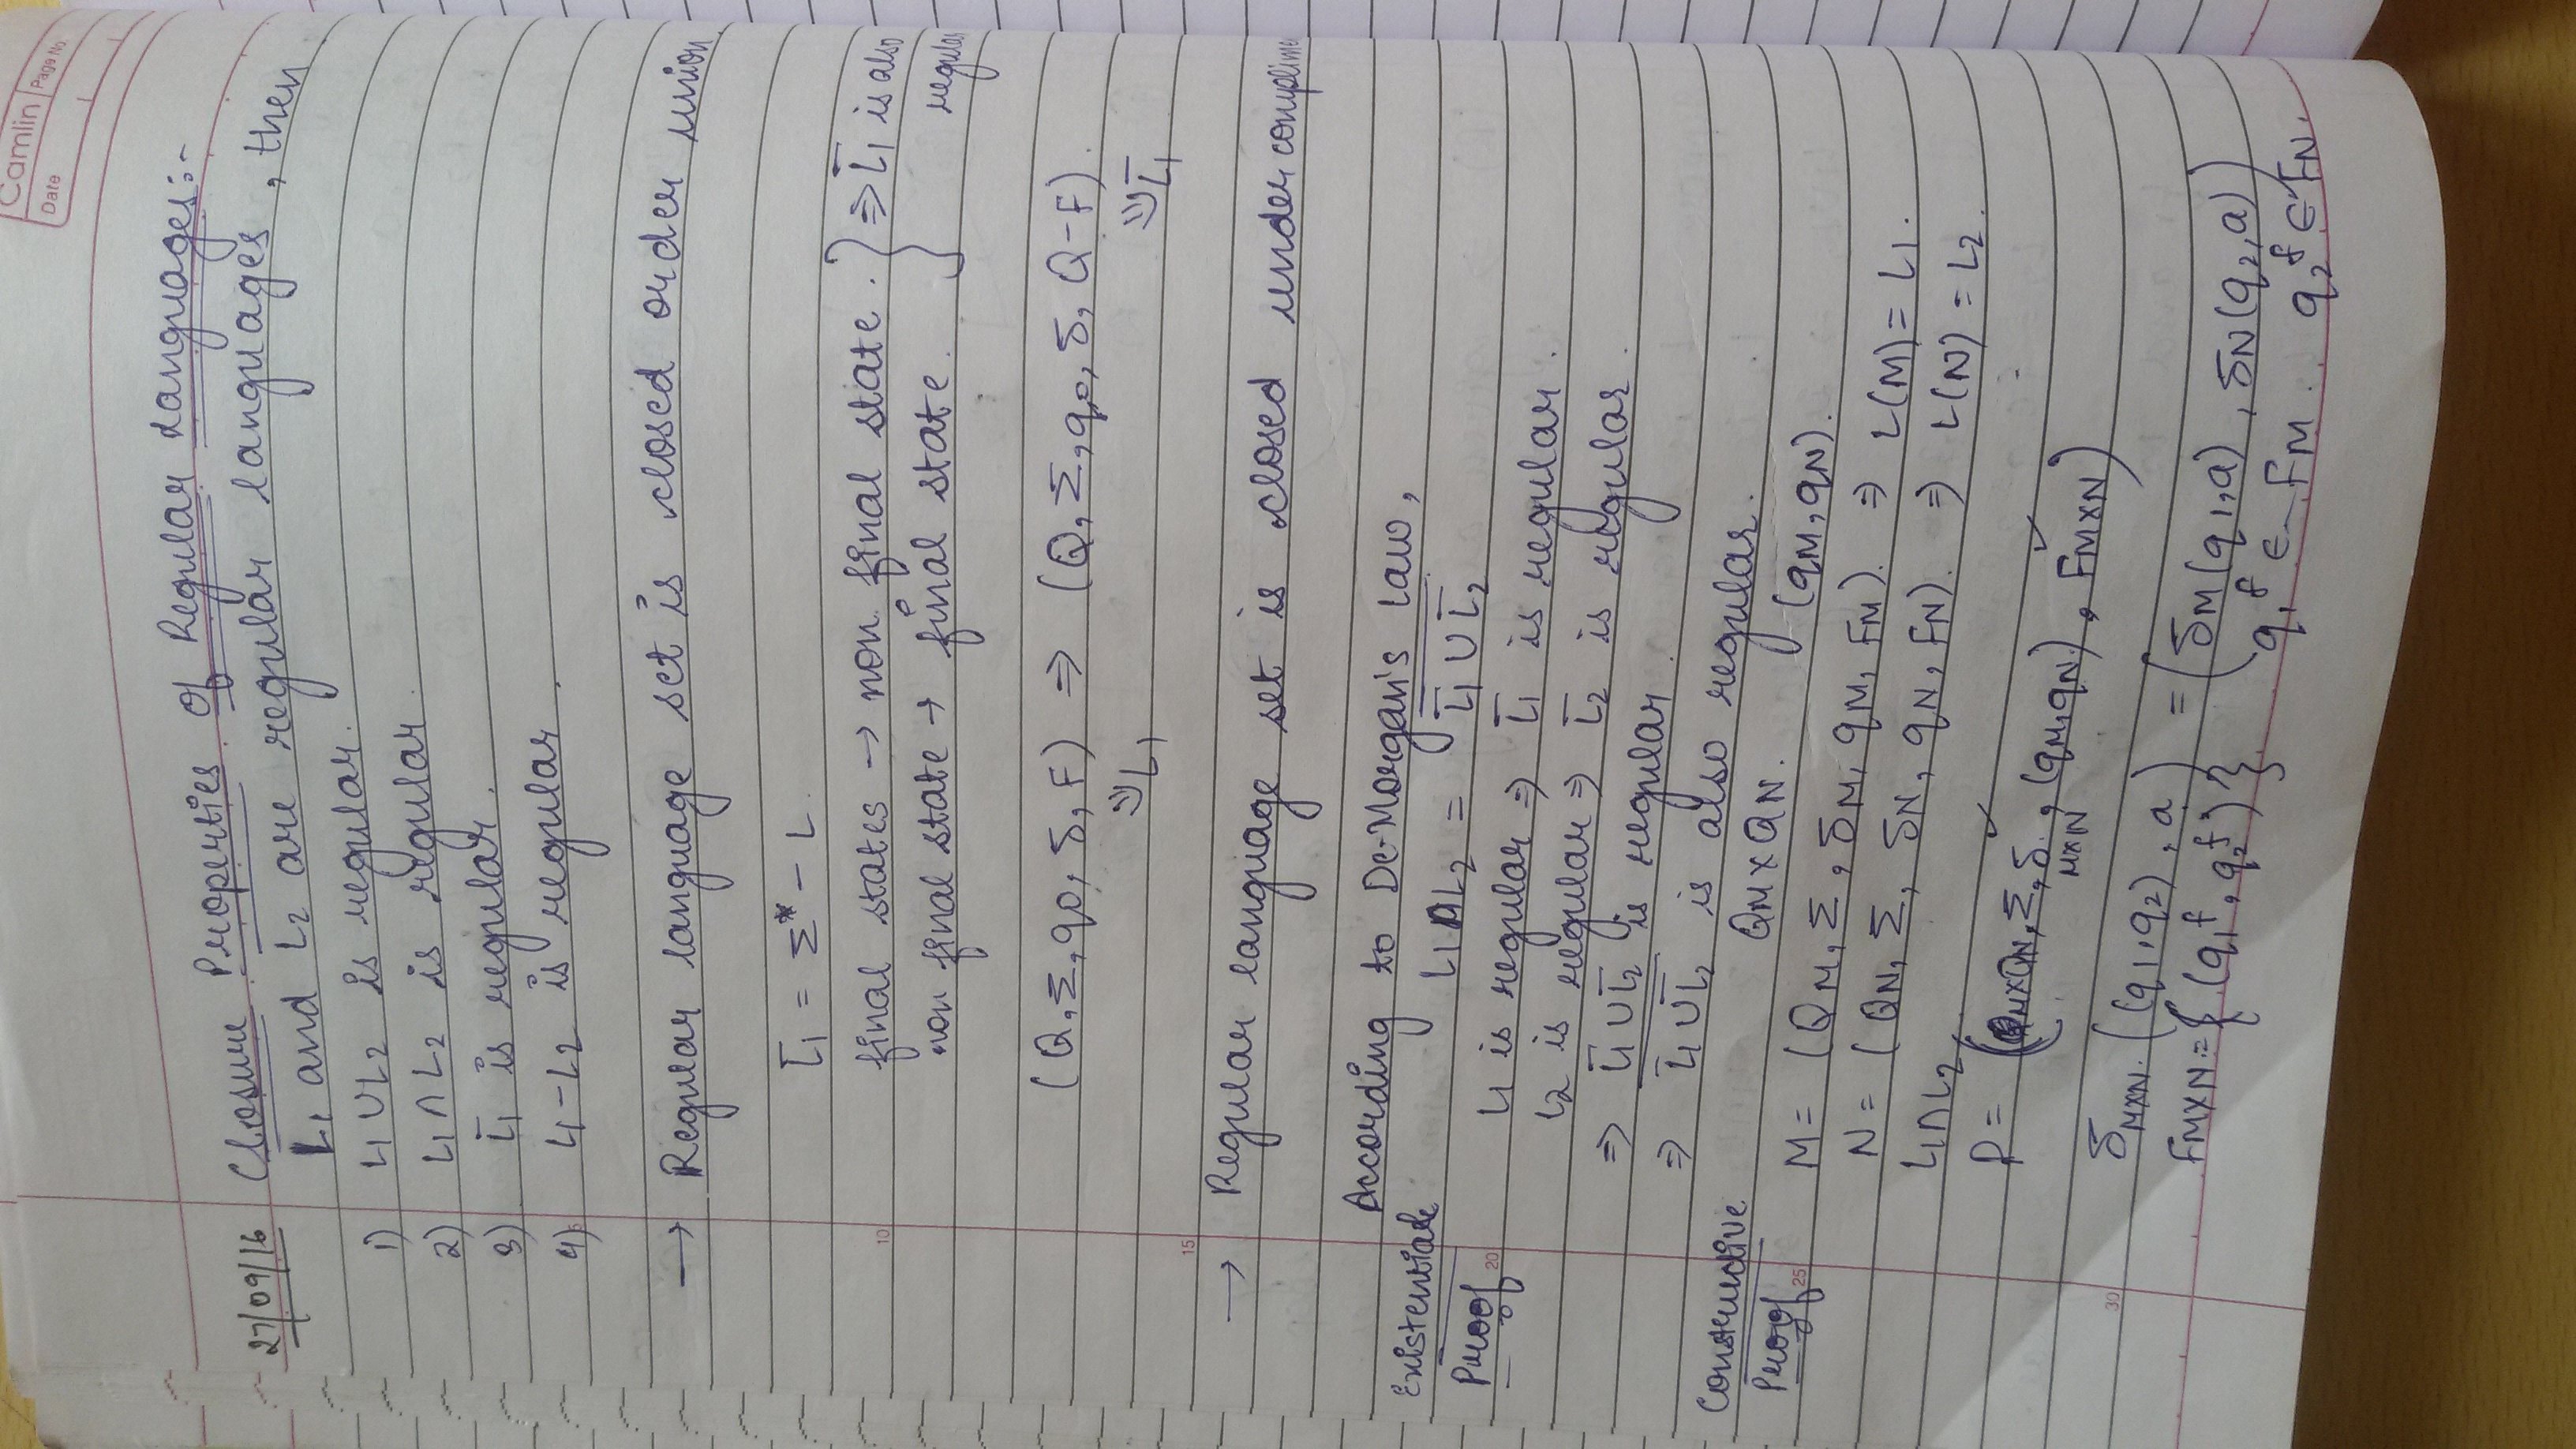 Camlin Page No.
Date
27/09/16 Closure Properties of Regular Languages:-
L₁ and L₂ are regular languages, then
1) L₁ ∪ L₂ is regular.
2) L₁ ∩ L₂ is regular.
3) L̅₁ is regular.
4) L₁ - L₂ is regular.
→ Regular language set is closed order union.
L̅₁ = Σ* - L.
final states → non final state. } ⇒ L̅₁ is also
non final state → final state. regular
10
(Q, Σ, q₀, δ, F) ⇒ (Q, Σ, q₀, δ, Q-F).
⇓ L₁ ⇓ L̅₁
15
→ Regular language set is closed under complime
According to De-Morgan's Law,
Existential
L₁ ∩ L₂ = \overline{L̅₁ ∪ L̅₂}
Proof 20
L₁ is regular ⇒ L̅₁ is regular.
L₂ is regular ⇒ L̅₂ is regular.
⇒ L̅₁ ∪ L̅₂ is regular.
⇒ \overline{L̅₁ ∪ L̅₂} is also regular.
Constructive
Q_M × Q_N. (q_M, q_N).
Proof 25
M = (Q_M, Σ, δ_M, q_M, F_M). ⇒ L(M) = L₁.
N = (Q_N, Σ, δ_N, q_N, F_N). ⇒ L(N) = L₂.
L₁ ∩ L₂,
P = (Q_M×Q_N, Σ, δ_M×N, (q_M, q_N), F_M×N)
30
δ_M×N ((q₁, q₂), a) = (δ_M(q₁, a), δ_N(q₂, a))
F_M×N = {(q₁ᶠ, q₂ᶠ)} q₁ᶠ ∈ F_M. q₂ᶠ ∈ F_N.